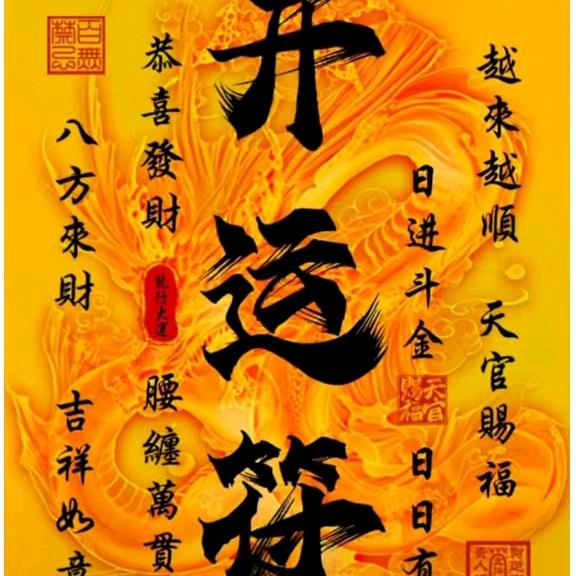 越來越順 天官賜福
日进斗金 日日有
开运符
恭喜發財 腰纏萬貫
八方來財 吉祥如意
百無禁忌
天官賜福